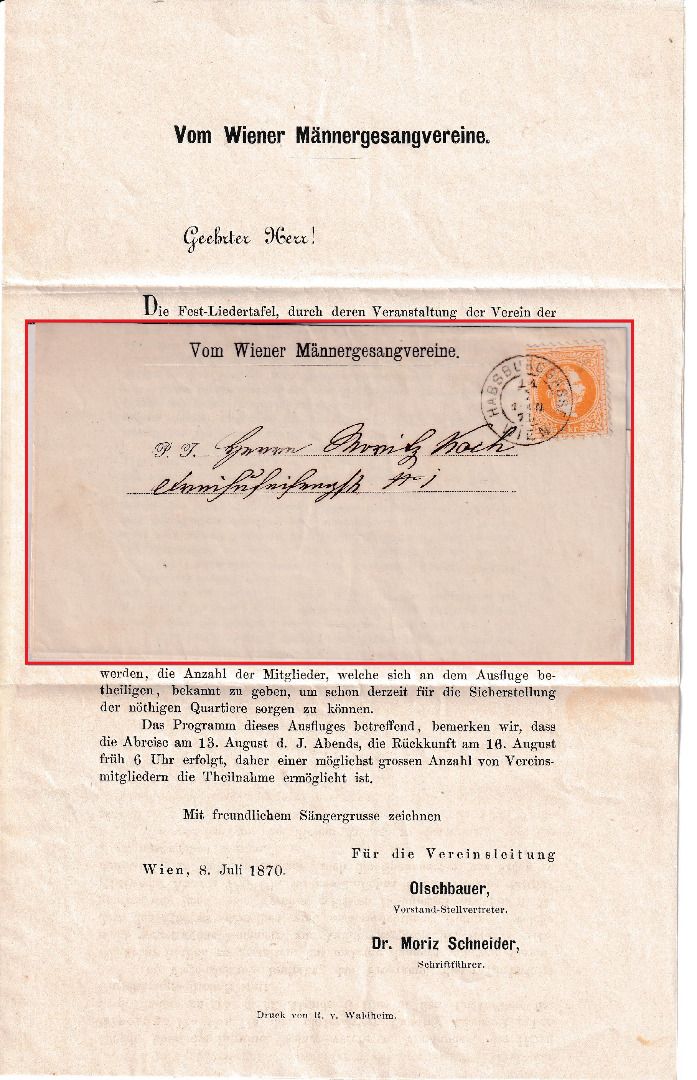 Vom Wiener Männergesangvereine.
Geehrter Herr!
Die Fest-Liedertafel, durch deren Veranstaltung der Verein der
Vom Wiener Männergesangvereine.
HABSBURGERG.
WIEN
P. T. Herrn Moritz Koch
werden, die Anzahl der Mitglieder, welche sich an dem Ausfluge be-
theiligen, bekannt zu geben, um schon derzeit für die Sicherstellung
der nöthigen Quartiere sorgen zu können.
Das Programm dieses Ausfluges betreffend, bemerken wir, dass
die Abreise am 13. August d. J. Abends, die Rückkunft am 16. August
früh 6 Uhr erfolgt, daher einer möglichst grossen Anzahl von Vereins-
mitgliedern die Theilnahme ermöglicht ist.
Mit freundlichem Sängergrusse zeichnen
Für die Vereinsleitung
Wien, 8. Juli 1870.
Olschbauer,
Vorstand-Stellvertreter.
Dr. Moriz Schneider,
Schriftführer.
Druck von R. v. Waldheim.